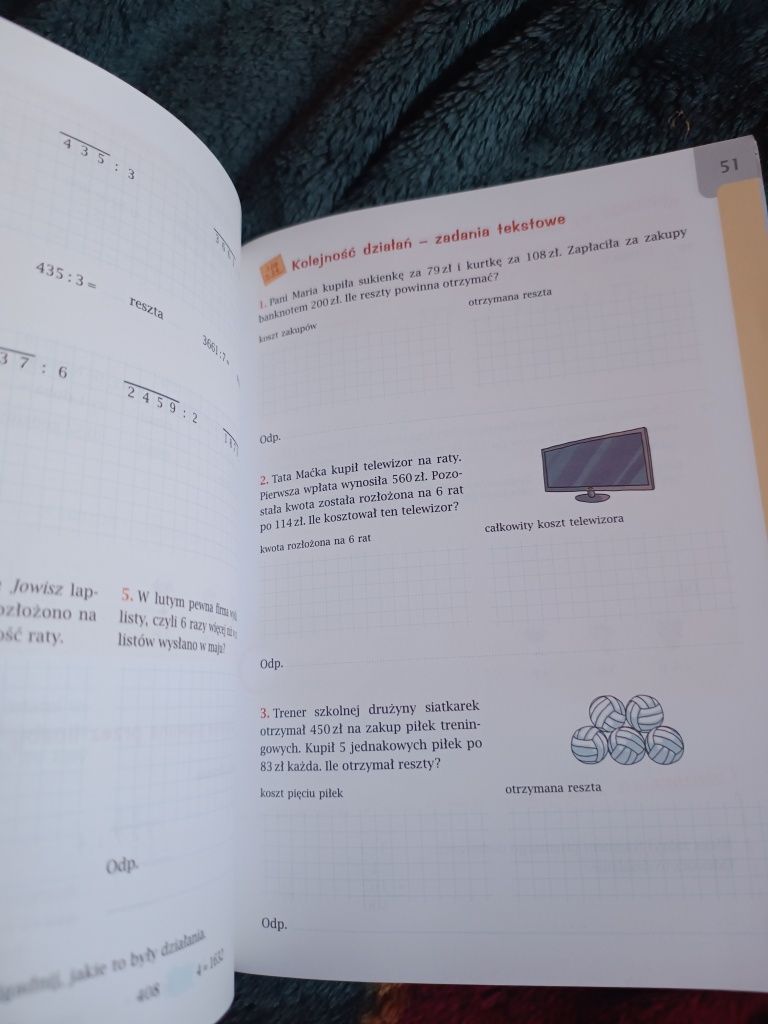 4 3 5 : 3
435 : 3 =
reszta
3661:7=
3 7 : 6
2 4 5 9 : 2
Jowisz lap-
ozłożono na
ość raty.
5. W lutym pewna firma
listy, czyli 6 razy więcej niż
listów wysłano w maju?
Odp.
jakie to były działania.
408
4 = 1632
51
Kolejność działań – zadania tekstowe
1. Pani Maria kupiła sukienkę za 79 zł i kurtkę za 108 zł. Zapłaciła za zakupy
banknotem 200 zł. Ile reszty powinna otrzymać?
koszt zakupów
otrzymana reszta
Odp.
2. Tata Maćka kupił telewizor na raty.
Pierwsza wpłata wynosiła 560 zł. Pozo-
stała kwota została rozłożona na 6 rat
po 114 zł. Ile kosztował ten telewizor?
kwota rozłożona na 6 rat
całkowity koszt telewizora
Odp.
3. Trener szkolnej drużyny siatkarek
otrzymał 450 zł na zakup piłek trenin-
gowych. Kupił 5 jednakowych piłek po
83 zł każda. Ile otrzymał reszty?
koszt pięciu piłek
otrzymana reszta
Odp.